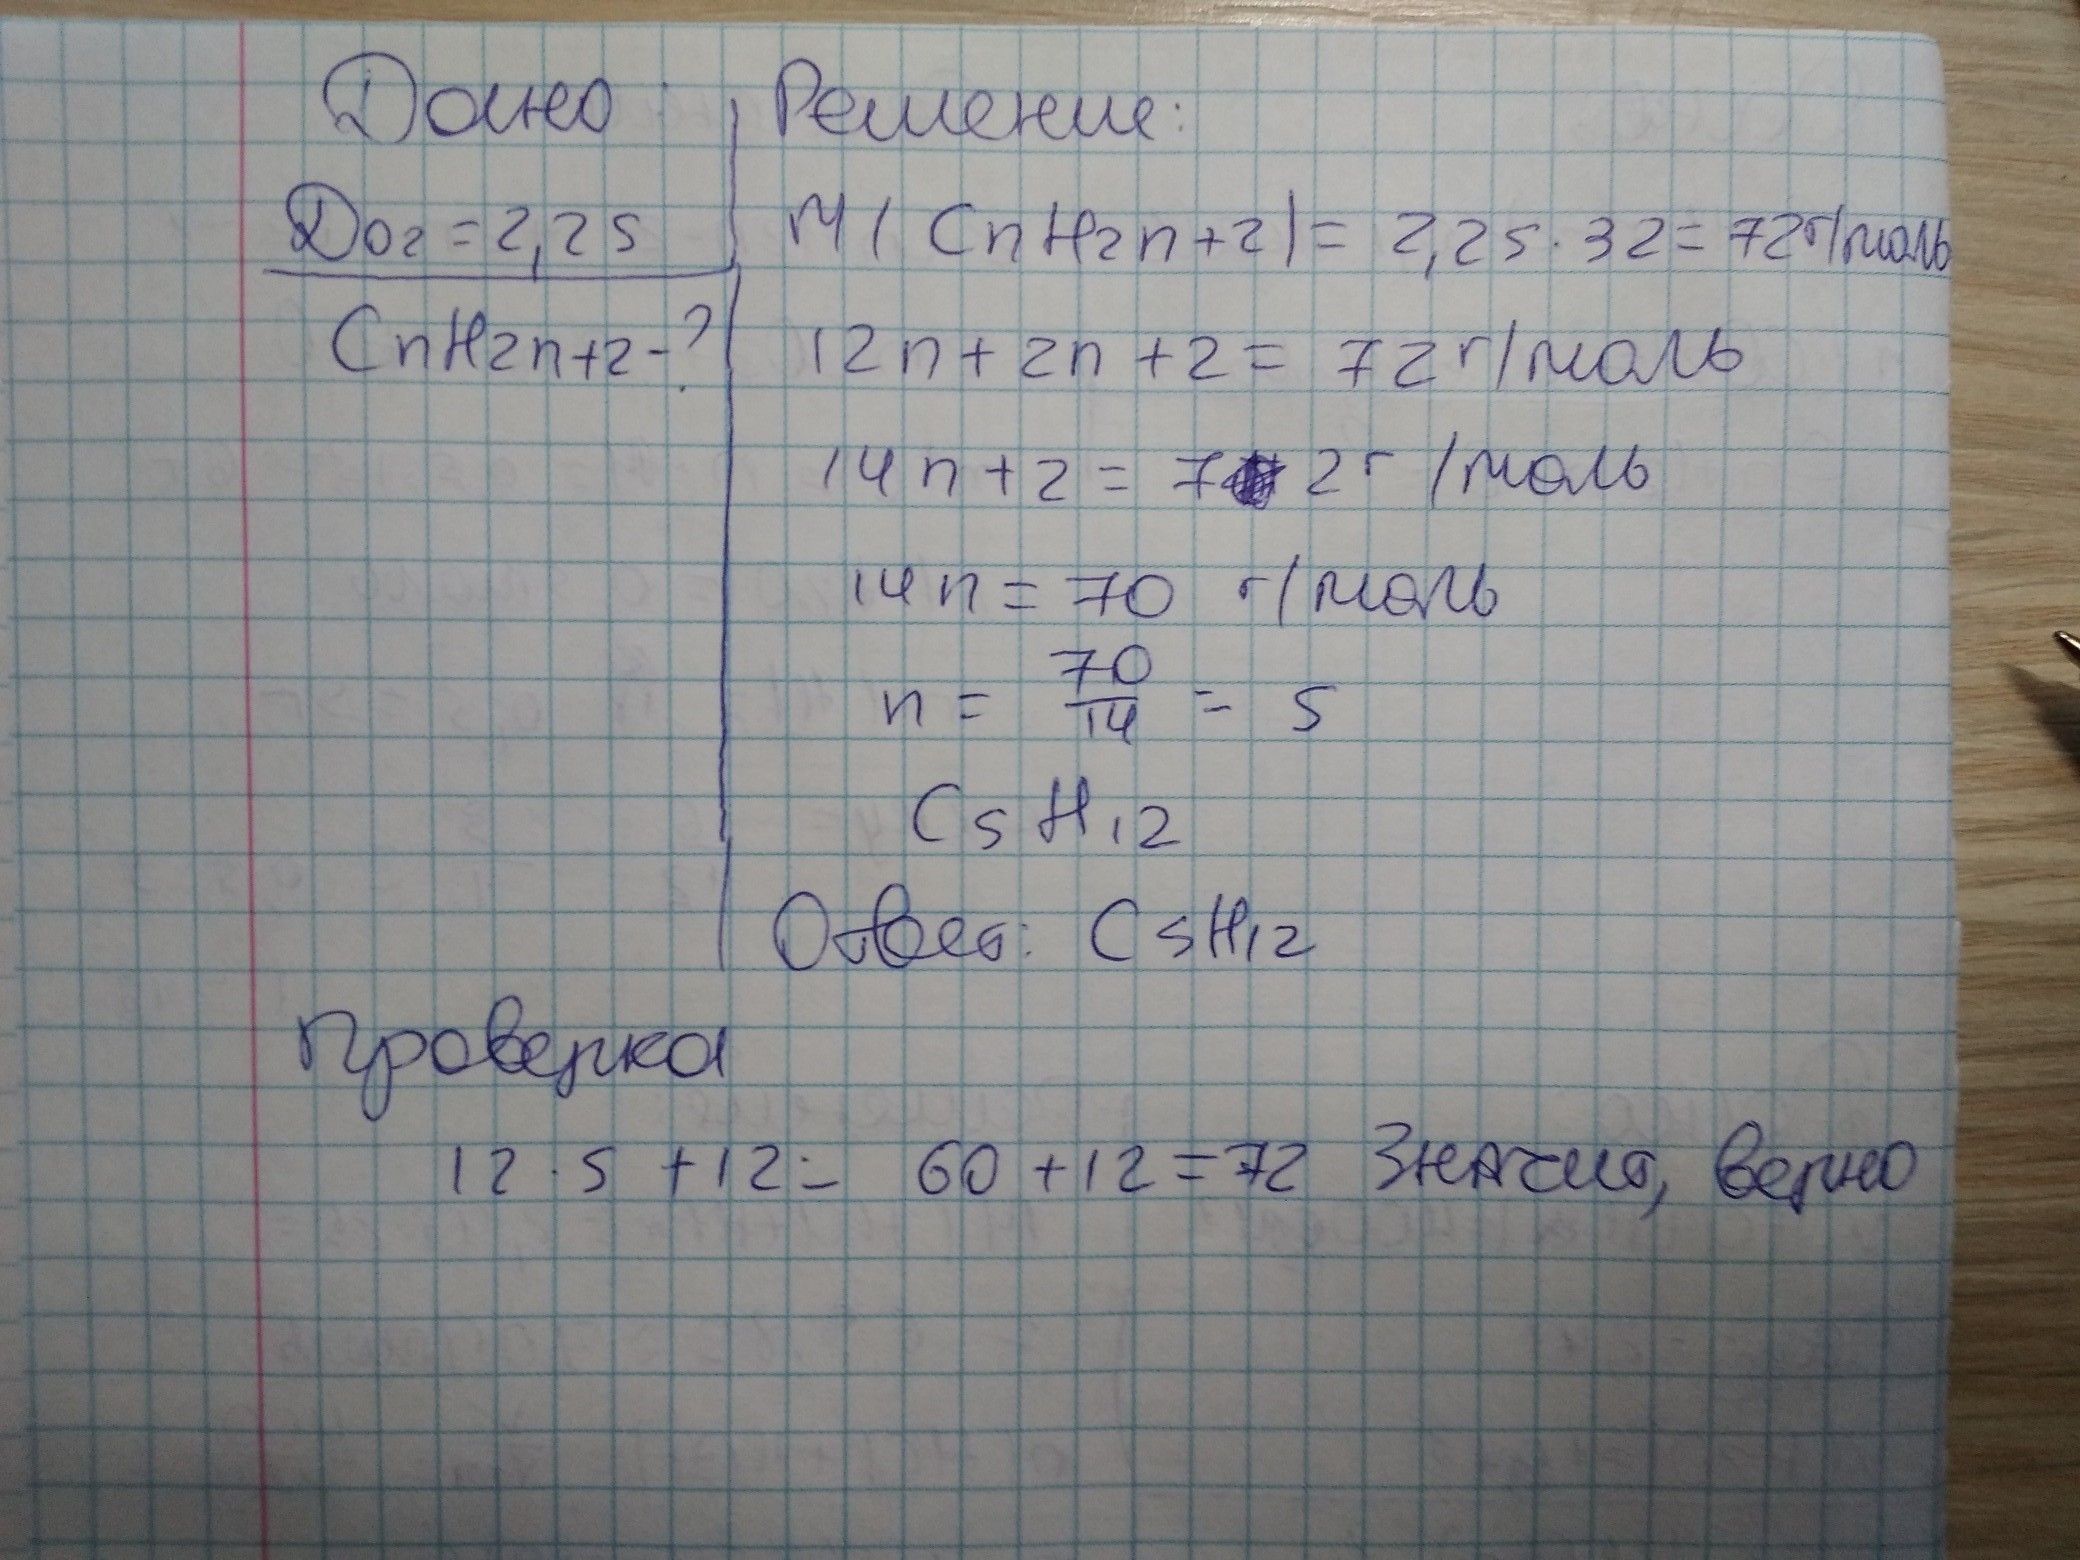 Дано: Решение:
Do2 = 2,25 M(CnH2n+2) = 2,25·32 = 72 г/моль
CnH2n+2-? 12n + 2n + 2 = 72 г/моль
14n + 2 = 72 г/моль
14n = 70 г/моль
n = 70/14 = 5
C5H12
Ответ: C5H12
Проверка
12·5 + 12 = 60 + 12 = 72 Значит, верно